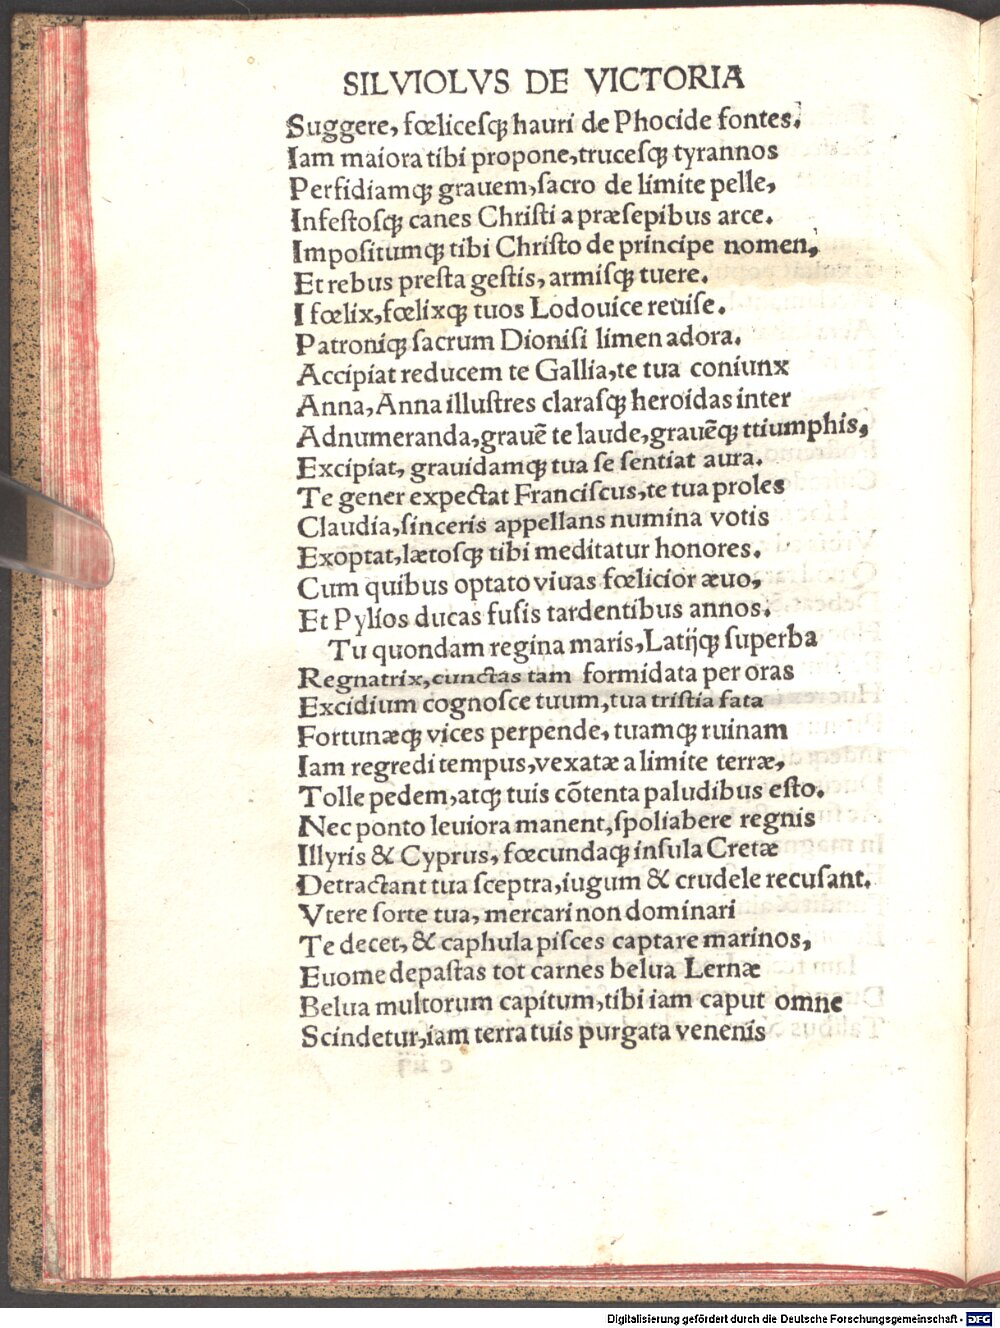 SILVIOLVS DE VICTORIA
Suggere, fœliceſqꝫ hauri de Phocide fontes.
Iam maiora tibi propone,truceſqꝫ tyrannos
Perfidiamqꝫ grauem,ſacro de limite pelle,
Infeſtoſqꝫ canes Chriſti a præſepibus arce.
Impoſitumqꝫ tibi Chriſto de principe nomen,
Et rebus preſta geſtis, armiſqꝫ tuere.
I fœlix,fœlixqꝫ tuos Lodouice reuiſe.
Patroniqꝫ ſacrum Dioniſi limen adora.
Accipiat reducem te Gallia,te tua coniunx
Anna,Anna illuſtres claraſqꝫ heroidas inter
Adnumeranda,grauē te laude,grauēqꝫ ttiumphis,
Excipiat, grauidamqꝫ tua ſe ſentiat aura.
Te gener expectat Franciſcus,te tua proles
Claudia,ſinceris appellans numina votis
Exoptat,lætoſqꝫ tibi meditatur honores.
Cum quibus optato viuas fœlicior æuo,
Et Pylios ducas fuſis tardentibus annos.
Tu quondam regina maris,Latijqꝫ ſuperba
Regnatrix,cunctas tam formidata per oras
Excidium cognoſce tuum,tua triſtia fata
Fortunæqꝫ vices perpende,tuamqꝫ ruinam
Iam regredi tempus,vexatæ a limite terræ,
Tolle pedem,atqꝫ tuis cōtenta paludibus eſto.
Nec ponto leuiora manent,ſpoliabere regnis
Illyris & Cyprus, fœcundaqꝫ inſula Cretæ
Detractant tua ſceptra,iugum & crudele recuſant.
Vtere ſorte tua, mercari non dominari
Te decet, & caphula piſces captare marinos,
Euome depaſtas tot carnes belua Lernæ
Belua multorum capitum,tibi iam caput omne
Scindetur,iam terra tuis purgata venenis
Digitalisierung gefördert durch die Deutsche Forschungsgemeinschaft - DFG